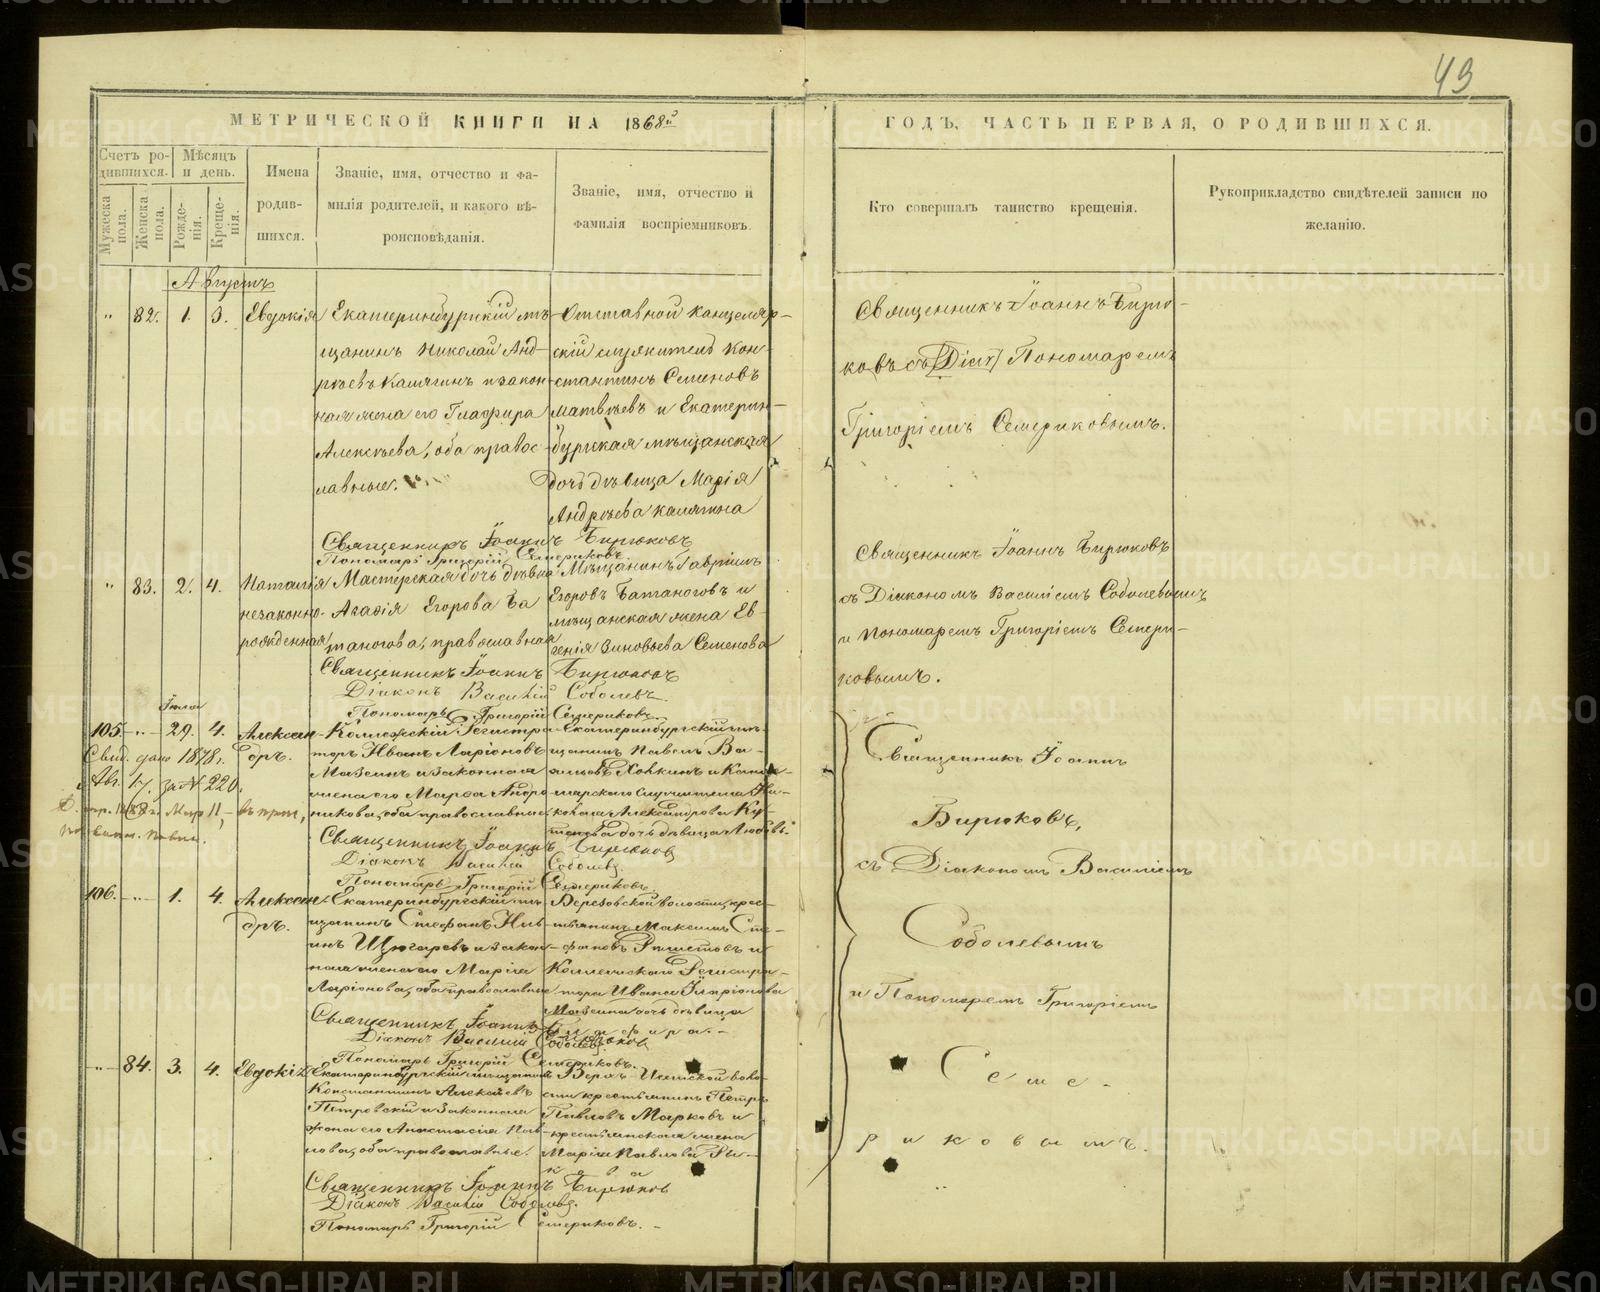 43
МЕТРИЧЕСКОЙ КНИГИ НА 1868й
ГОДЪ, ЧАСТЬ ПЕРВАЯ, О РОДИВШИХСЯ.
Счетъ ро-
дившихся.
Мѣсяцъ
и день.
Мужеска
пола.
Женска
пола.
Рожде-
нія.
Креще-
нія.
Имена
родив-
шихся.
Званіе, имя, отчество и фа-
милія родителей, и какого вѣ-
роисповѣданія.
Званіе, имя, отчество и
фамилія воспріемниковъ.
Кто совершалъ таинство крещенія.
Рукоприкладство свидѣтелей записи по
желанію.
Августъ
" 82. 1. 3. Евдокія
Екатеринбургскій мѣ-
щанинъ Николай Анд-
реевъ Калягинъ и закон-
ная жена его Глафира
Алексѣева, оба правос-
лавные.
Отставной канцеляр-
скій служитель Кон-
стантинъ Семеновъ
Матвѣевъ и Екатерин-
бургская мѣщанская
дочь дѣвица Марія
Андреева Калягина
Священникъ Іоаннъ Бирю-
ковъ съ Пономаремъ
Григоріемъ Семериковымъ.
Священникъ Іоаннъ Бирюковъ
Пономарь Григорій Семериковъ.
" 83. 2. 4. Наталія
незаконно-
рожденная
Мастерская дочь дѣвица
Агафія Егорова Ба-
таногова, православная
Мѣщанинъ Гавріилъ
Егоровъ Батаноговъ и
мѣщанская жена Ев-
генія Зиновьева Семенова
Священникъ Іоаннъ Бирюковъ
съ Діакономъ Василіемъ Соболевымъ
и Пономаремъ Григоріемъ Семери-
ковымъ.
Священникъ Іоаннъ Бирюковъ
Діаконъ Василій Соболевъ
Пономарь Григорій Семериковъ.
Іюля
105. " 29. 4. Алексан-
дръ.
Свид. дано 1878 г.
Авг. 17. за № 220.
Коллежскій Регистра-
торъ Иванъ Ларіоновъ
Мазеинъ и законная
жена его Марѳа Андро-
никова, оба православные
Екатеринбургскій мѣ-
щанинъ Павелъ Ва-
сильевъ и
дочь дѣвица Любовь.
Священникъ Іоаннъ
Бирюковъ,
съ Діакономъ Василіемъ
Соболевымъ
и Пономаремъ Григоріемъ
Семе-
риковымъ.
Священникъ Іоаннъ Бирюковъ
Діаконъ Василій Соболевъ.
Пономарь Григорій Семериковъ
106. " 1. 4. Алексан-
дръ.
Екатеринбургскій мѣ-
щанинъ Стефанъ
и закон-
ная жена его Марія
Ларіонова, оба православные
Березовской волости, крес-
тьянинъ Максимъ Сте-
фановъ и
Коллежскаго Регистра-
тора Ивана Ларіонова
Мазеина дочь дѣвица
Глафира.
Священникъ Іоаннъ Бирюковъ
Діаконъ Василій Соболевъ
Пономарь Григорій Семериковъ.
" 84. 3. 4. Евдокія
Екатеринбургскій мѣщанинъ
Константинъ Алексѣевъ
Петровскій и законная
жена его Анастасія Пав-
лова, оба православные.
Верхъ-Исетской воло-
сти крестьянинъ Петръ
Павловъ Марковъ и
крестьянская жена
Марія Павлова Ры-
кова
Священникъ Іоаннъ Бирюковъ
Діаконъ Василій Соболевъ.
Пономарь Григорій Семериковъ.